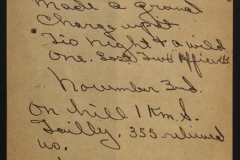 Made a grand
Charge up it
'Tis night & a wild
One. Lost two Officers
November 3rd.
On hill 1 Km. S.
Tailly. 353 relieved
us.